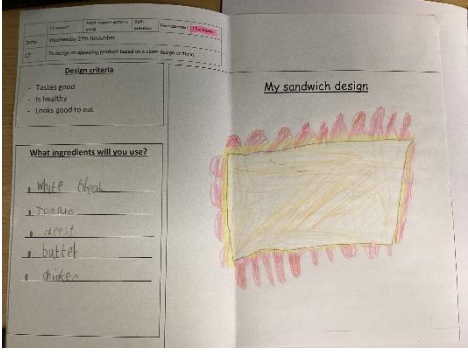 Wednesday 27th November
To design an appealing product based on a clear design criteria.
Design criteria
- Tastes good
- Is healthy
- Looks good to eat
What ingredients will you use?
white bread
tomato
butter
My sandwich design